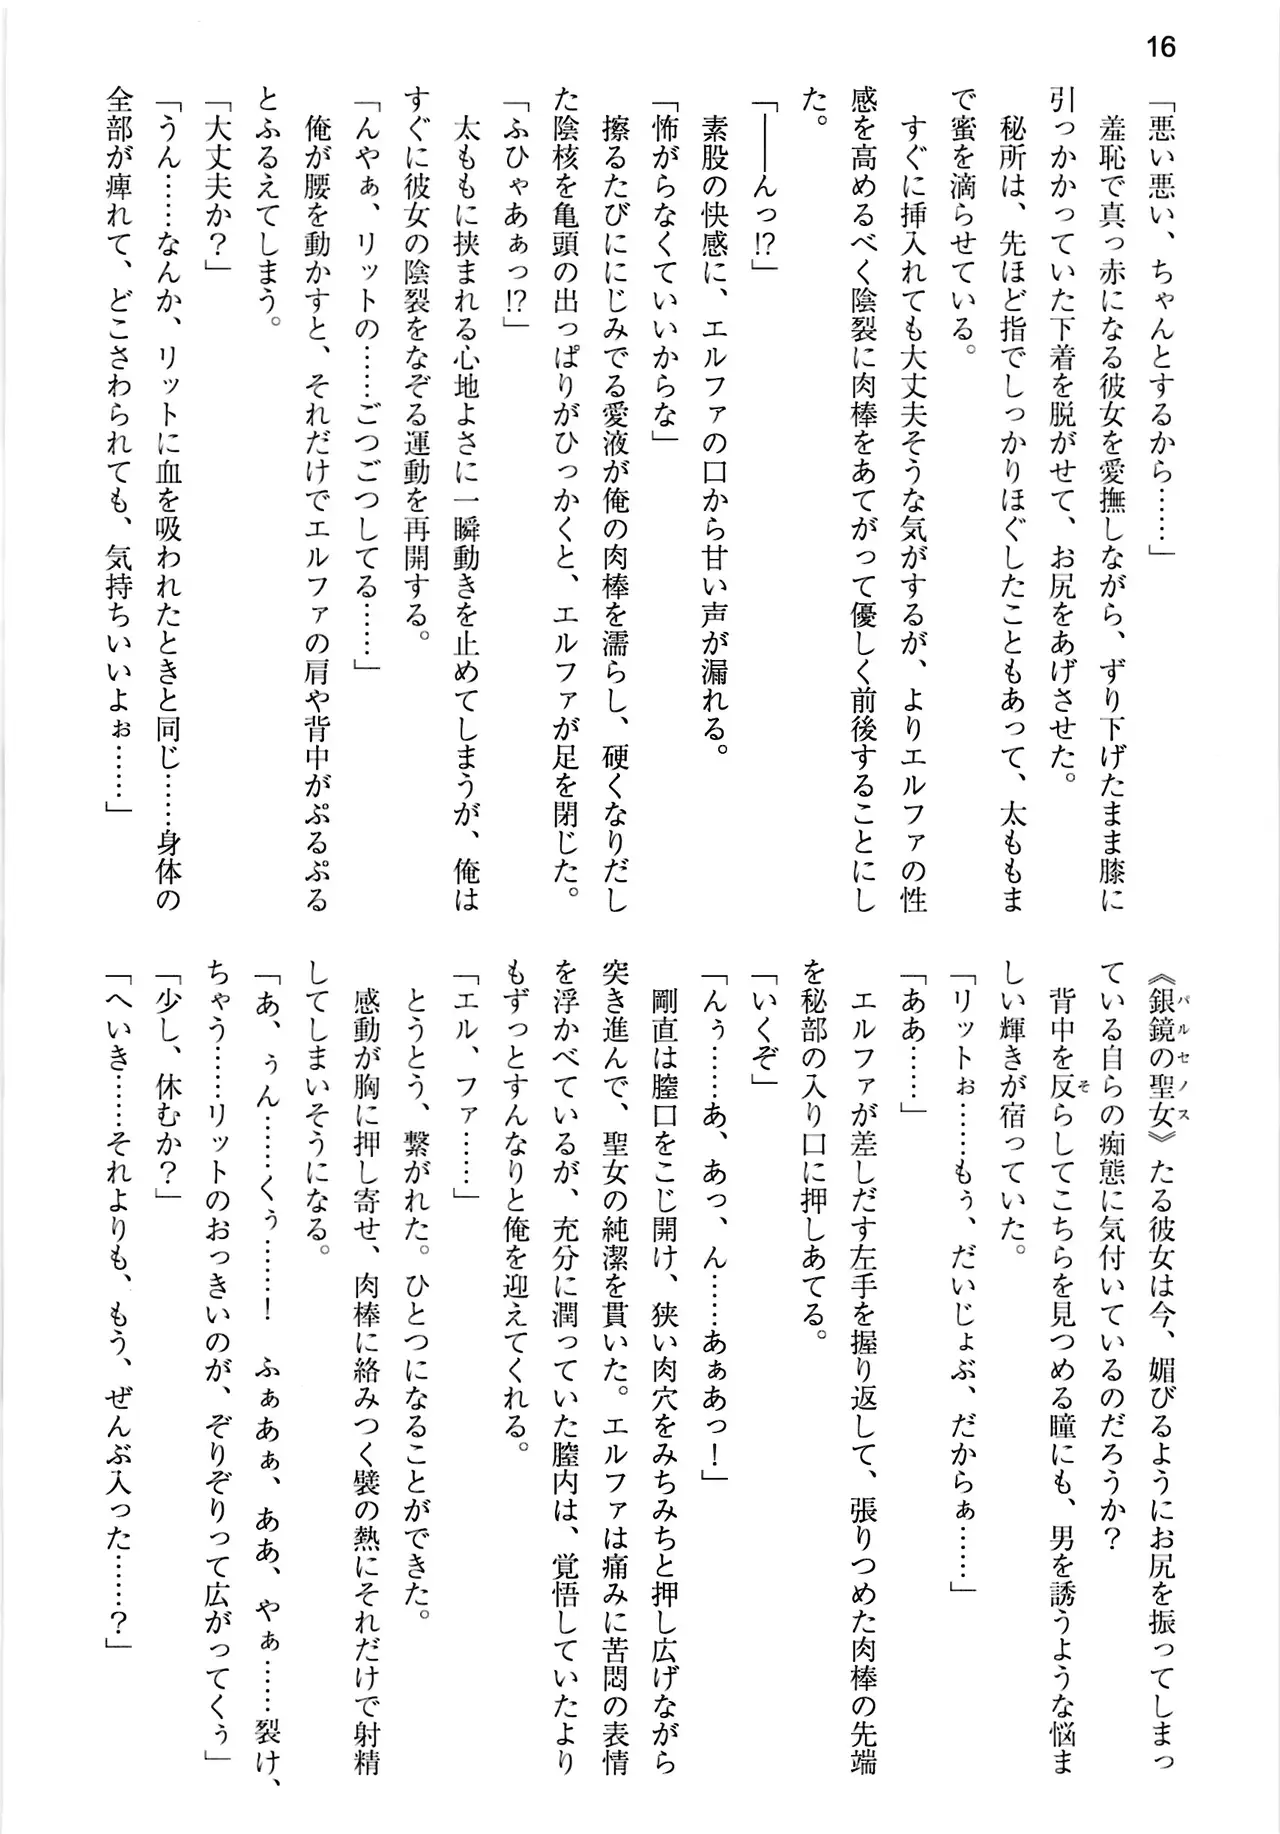 16
「悪い悪い、ちゃんとするから……」
羞恥で真っ赤になる彼女を愛撫しながら、ずり下げたまま膝に
引っかかっていた下着を脱がせて、お尻をあげさせた。
秘所は、先ほど指でしっかりほぐしたこともあって、太ももま
で蜜を滴らせている。
すぐに挿入れても大丈夫そうな気がするが、よりエルファの性
感を高めるべく陰裂に肉棒をあてがって優しく前後することにし
た。
「――んっ!?」
素股の快感に、エルファの口から甘い声が漏れる。
「怖がらなくていいからな」
擦るたびににじみでる愛液が俺の肉棒を濡らし、硬くなりだし
た陰核を亀頭の出っぱりがひっかくと、エルファが足を閉じた。
「ふひゃあぁっ!?」
太ももに挟まれる心地よさに一瞬動きを止めてしまうが、俺は
すぐに彼女の陰裂をなぞる運動を再開する。
「んやぁ、リットの……ごつごつしてる……」
俺が腰を動かすと、それだけでエルファの肩や背中がぷるぷる
とふるえてしまう。
「大丈夫か？」
「うん……なんか、リットに血を吸われたときと同じ……身体の
全部が痺れて、どこさわられても、気持ちいいよぉ……」
《銀鏡の聖女》たる彼女は今、媚びるようにお尻を振ってしまっ
パルセノス
ている自らの痴態に気付いているのだろうか？
背中を反らしてこちらを見つめる瞳にも、男を誘うような悩ま
そ
しい輝きが宿っていた。
「リットぉ……もぅ、だいじょぶ、だからぁ……」
「ああ……」
エルファが差しだす左手を握り返して、張りつめた肉棒の先端
を秘部の入り口に押しあてる。
「いくぞ」
「んぅ……あ、あっ、ん……あぁあっ！」
剛直は膣口をこじ開け、狭い肉穴をみちみちと押し広げながら
突き進んで、聖女の純潔を貫いた。エルファは痛みに苦悶の表情
を浮かべているが、充分に潤っていた膣内は、覚悟していたより
もずっとすんなりと俺を迎えてくれる。
「エル、ファ……」
とうとう、繋がれた。ひとつになることができた。
感動が胸に押し寄せ、肉棒に絡みつく襞の熱にそれだけで射精
してしまいそうになる。
「あ、ぅん……くぅ……！　ふぁあぁ、ああ、やぁ……裂け、
ちゃう……リットのおっきいのが、ぞりぞりって広がってくぅ」
「少し、休むか？」
「へいき……それよりも、もう、ぜんぶ入った……？」